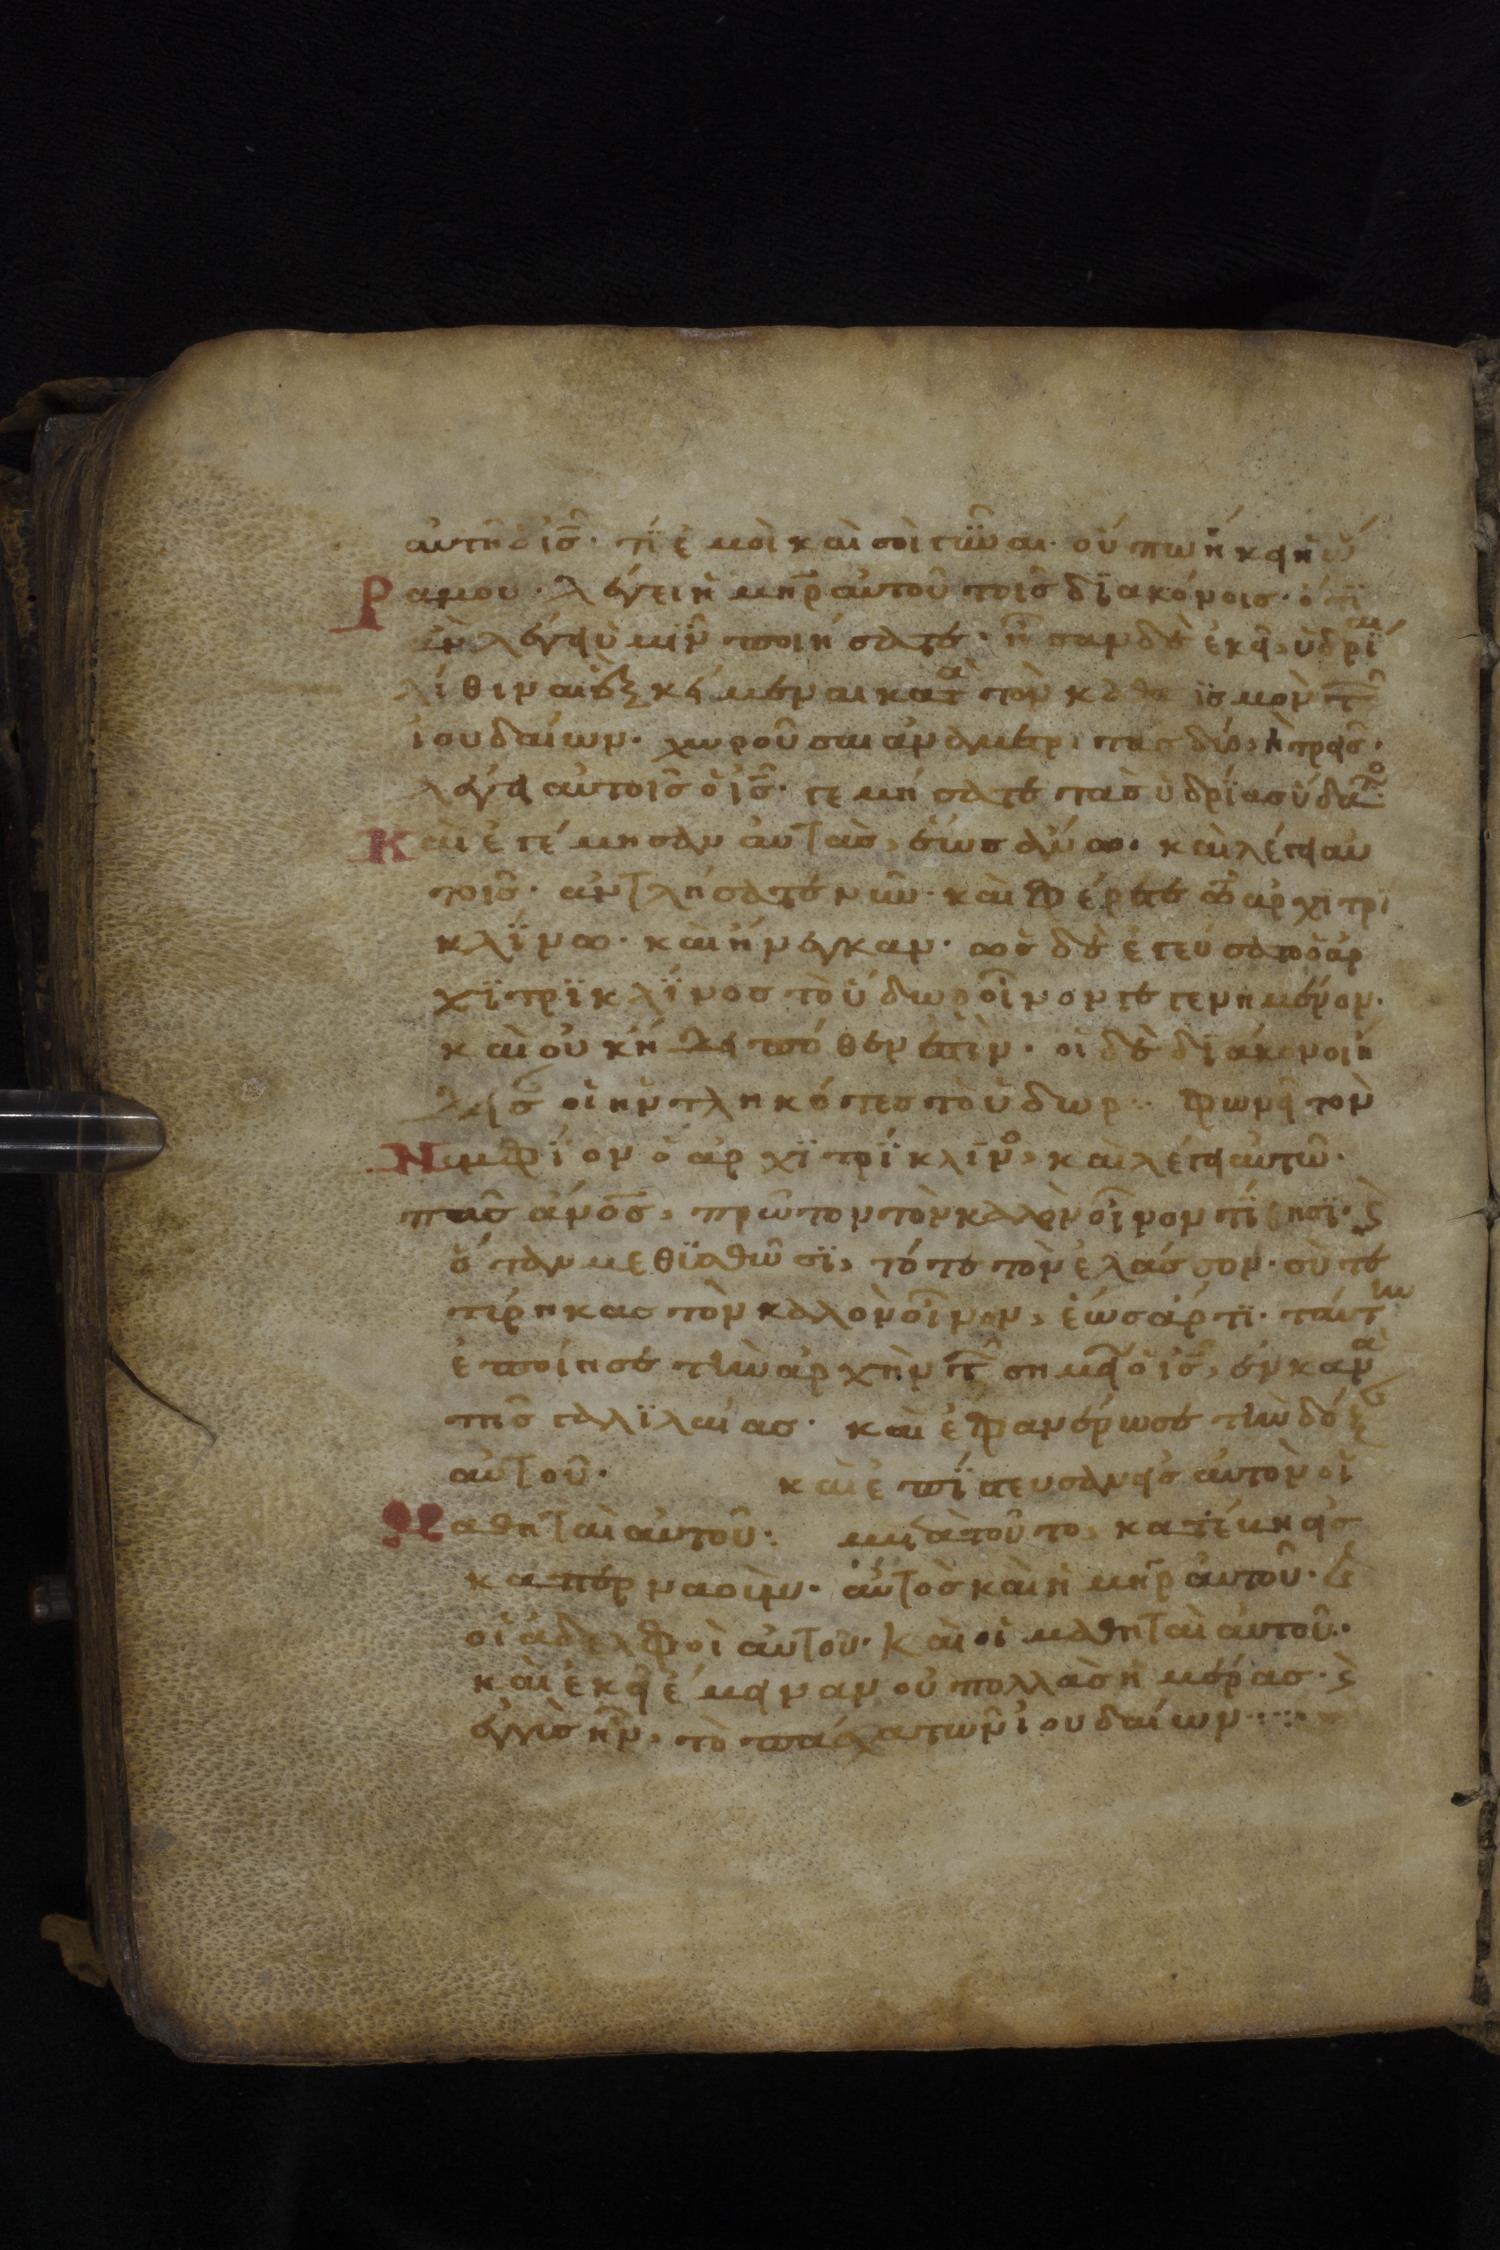 αὐτῆ ὁ ἰς̅· τΐ ἐμοὶ καὶ σοὶ γῦναι· οὔπω ἥκει ἡ ὥ
ρα μου· λέγει ἡ μη̅ρ αὐτοῦ τοῖς δϊακόνοις· ὅτι
ἐὰν λέγει ὑμῖν ποιήσατε· ἦσαν δὲ ἐκεῖ, ὑδρΐαι
λίθιναι ἓξ κείμεναι κατὰ τὸν καθαρϊσμὸν τῶν
ἰουδαίων· χωροῦσαι ἀνὰ μετρητὰς δύο, ἢ τρεῖς·
λέγει αὐτοῖς ὁ ἰς̅· γεμήσατε τὰς ὑδρίας ὕδατος·
Καὶ ἐγέμησαν αὐτὰς, ἕως ἄνω· καὶ λέγει αὐ
τοῖς· ἀντλήσατε νῦν· καὶ φέρετε τῶ ἀρχιτρι
κλΐνω· καὶ ἤνεγκαν· ὡς δὲ ἐγεύσατο ὁ ἀρ
χϊτρϊκλΐνος τὸ ὕδωρ οἶνον γεγενημένον·
καὶ οὐκ ἤδει πόθεν ἐστὶν· οἱ δὲ δϊάκονοι ἤ
δεισαν οἱ ἠντληκότες τὸ ὕδωρ· φωνεῖ τὸν
Νυμφΐον ὁ ἀρχϊτρΐκλινος, καὶ λέγει αὐτῶ·
πᾶς ἄνο̅ς, πρῶτον τὸν καλὸν οἶνον τΐθησϊ· ϗ
ὅταν μεθϊσθῶσϊ, τότε τὸν ἐλάσσον· σὺ τε
τίρηκας τὸν καλὸν οἶνον, ἕως ἄρτϊ· ταύτην
ἐποίησε τὴν ἀρχὴν τῶν σημείων ὁ ἰς̅, ἐν κανὰ
τῆς γαλϊλαίας· καὶ ἐφανέρωσε τὴν δόξαν
αὐτοῦ· καὶ ἐπΐστευσαν εἰς αὐτὸν οἱ
Μαθηταὶ αὐτοῦ· μετὰ τοῦτο, κατέβη εἰς
καπερναοὺμ· αὐτὸς καὶ ἡ μη̅ρ αὐτοῦ· ϗ
οἱ ἀδελφοὶ αὐτοῦ· καὶ οἱ μαθηταὶ αὐτοῦ·
καὶ ἐκεῖ ἔμειναν οὐ πολλὰς ἡμέρας· ϗ
ἐγγὺς ἦν, τὸ πάσχα τῶν ἰουδαίων·